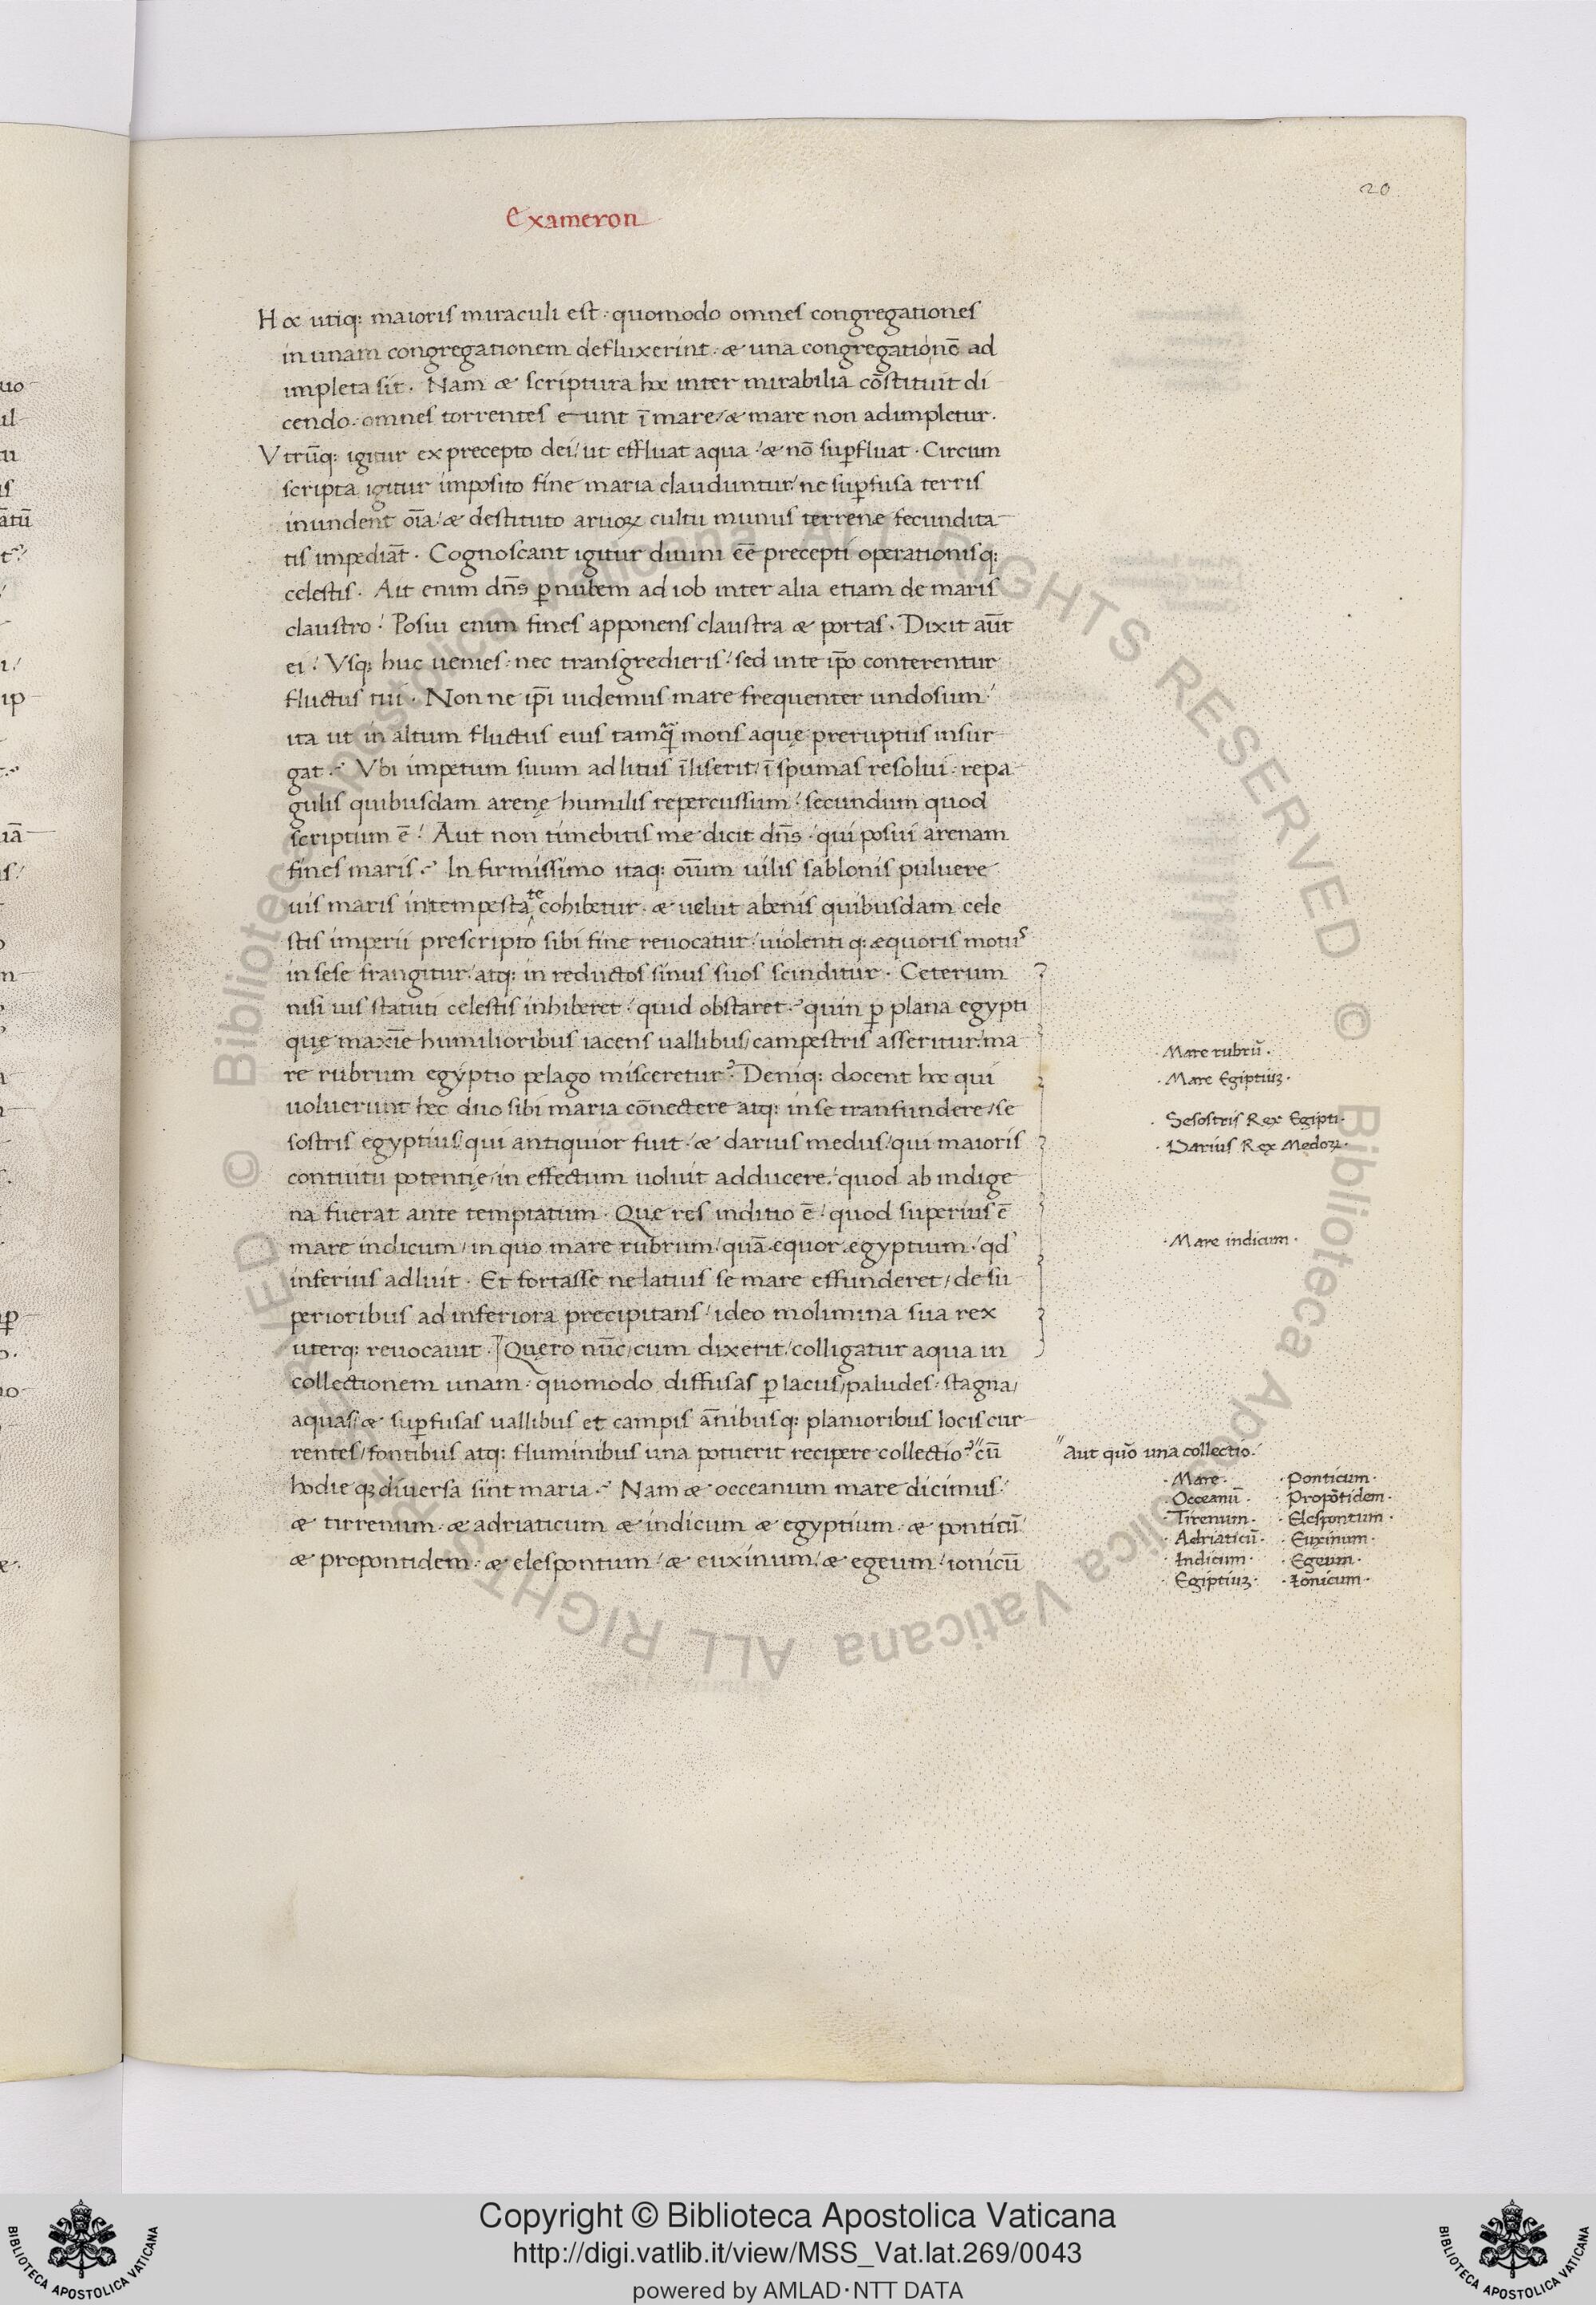 20
Exameron
Hoc utiq; maioris miraculi est· quomodo omnes congregationes
in unam congregationem defluxerint· & una congregationē ad
impleta sit· Nam & scriptura hoc inter mirabilia cōstituit di
cendo· omnes torrentes eunt ī mare/ & mare non adimpletur·
Vtrūq; igitur ex precepto dei/ ut effluat aqua / & nō suꝑfluat· Circum
scripta igitur imposito fine maria clauduntur/ ne suꝑfusa terris
inundent oīa/ & destituto aruoꝝ cultu munus terrene fecundita
tis impediāt· Cognoscant igitur diuini eē precepti operationisq;
celestis· Ait enim dn̄s ꝑ nubem ad iob inter alia etiam de maris
claustro/ Posui enim fines apponens claustra & portas· Dixit aūt
ei/ Vsq; huc uenies· nec transgredieris/ sed in te ip̄o conterentur
fluctus tui· Non ne ip̄i uidemus mare frequenter undosum/
ita ut in altum fluctus eius tamq̄ mons aquę preruptus insur
gat· Vbi impetum suum ad litus īliserit/ ī spumas resolui· repa
gulis quibusdam arenę humilis repercussum/ secundum quod
scriptum ē/ Aut non timebitis me dicit dn̄s· qui posui arenam
fines maris· In firmissimo itaq; oīum uilis sablonis puluere
uis maris intempestate cohibetur· & uelut abenis quibusdam cele
stis imperii prescripto sibi fine reuocatur/ uiolenti q; æquoris motus
in sese frangitur/ atq; in reductos sinus suos scinditur· Ceterum
nisi uis statuti celestis inhiberet/ quid obstaret· quin ꝑ plana egypti
quę maxīe humilioribus iacens uallibus/ campestris asseritur/ ma
re rubrum egyptio pelago misceretur? Deniq; docent hoc qui
uoluerunt hęc duo sibi maria cōnectere atq; in se transfundere/ se
sostris egyptius/ qui antiquior fuit· & darius medus/ qui maioris
contuitu potentię/ in effectum uoluit adducere/ quod ab indige
na fuerat ante temptatum· Que res inditio ē/ quod superius ē
mare indicum/ in quo mare rubrum/ quā æquor ægyptium· qd
inferius adluit· Et fortasse ne latius se mare effunderet/ de su
perioribus ad inferiora precipitans/ ideo molimina sua rex
uterq; reuocauit· Quęro nūc/ cum dixerit/ colligatur aqua in
collectionem unam· quomodo diffusas ꝑ lacus/ paludes· stagna/
aquas/ & suꝑfusas uallibus et campis ānibusq; planioribus locis cur
rentes/ fontibus atq; fluminibus una potuerit recipere collectio? " cū
hodie qꝫ diuersa sint maria· Nam & occeanum mare dicimus/
& tirrenum· & adriaticum & indicum & egyptium· & ponticū
& propontidem· & elespontum/ & euxinum/ & egeum/ ionicū
· Mare rubrū ·
· Mare Egiptiuꝫ ·
· Sesostris Rex Egipti ·
· Darius Rex Medoꝝ ·
· Mare indicum ·
" Aut quō una collectio/
· Mare · · Ponticum ·
· Occeanū · · Propōtidem ·
· Tirenum · · Elespontum ·
· Adriaticū · · Euxinum ·
· Indicum · · Egeum ·
· Egiptiuꝫ · · Ionicum ·
Copyright © Biblioteca Apostolica Vaticana
http://digi.vatlib.it/view/MSS_Vat.lat.269/0043
powered by AMLAD·NTT DATA
BIBLIOTECA APOSTOLICA VATICANA
BIBLIOTECA APOSTOLICA VATICANA